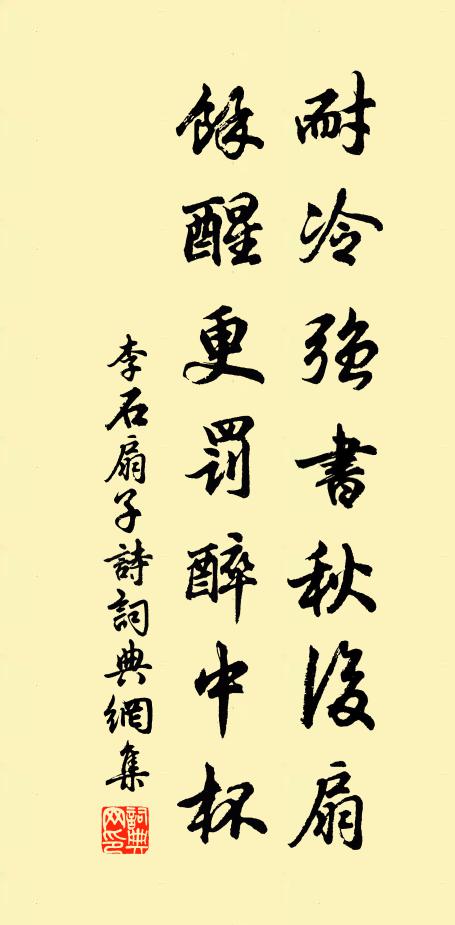 耐冷強書秋後扇
餘醒更罰醉中杯
李石扇子詩詞典網集
詞典网印